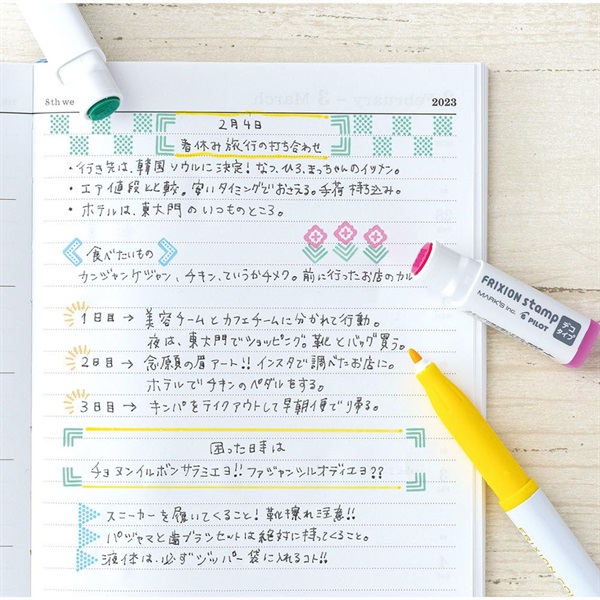 8th we
2023
2月4日
春休み旅行の打ち合わせ
・行き先は、韓国ソウルに決定！なつ、ひろ、まっちゃんのイツメン。
・エア値段とと比較。安いタイミングでおさえる。手荷 持ち込み。
・ホテルは、東大門のいつものところ。
食べたいもの
カンジャンケジャン、チキン、ていうかチメク。前に行ったお店のカル
1日目 → 美容チームとカフェチームに分かれて行動。
夜は、東大門でショッピング。靴とバッグ買う。
2日目 → 念願の眉アート!! インスタで調べたお店に。
ホテルでチキンのペダルをする。
3日目 → キンパをテイクアウトして早朝便で帰る。
困った日時は
チョヌンイルボンサラミエヨ!! ファジャンシルオディエヨ??
スニーカーを履いてくること！靴擦れ注意!!
パジャマと歯ブラシセットは絶対に持ってくること。
液体は、必ずジッパー袋に入れるコト!!
FRIXION stamp
MARK'S Inc. PILOT
デコタイプ